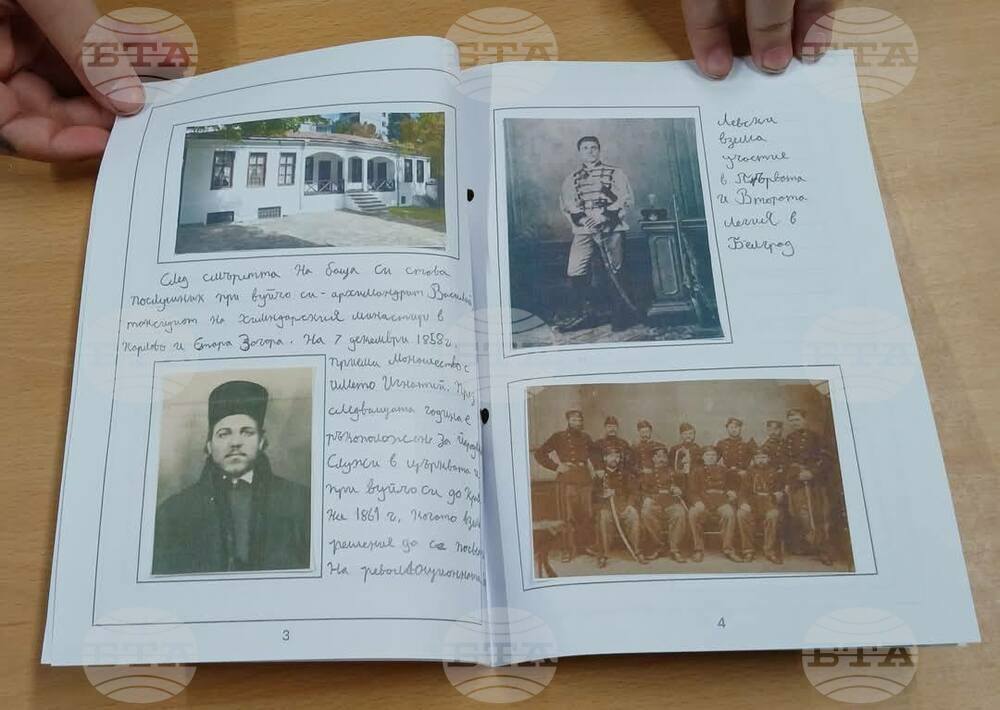 След смъртта на баща си става
послушник при вуйчо си - архимандрит Василий
таксидиот на хилендарския манастир в
Карлово и Стара Загора. На 7 декември 1858г.
приема монашество с
името Игнатий. През
следващата година е
ръкоположен за
Служи в църквата и
при вуйчо си до
на 1861 г. когато
решение да се
на революционната
3
Левски
взима
участие
в Първата
и Втората
легия в
Белград
4
БТА
БТА
БТА
БТА
БТА
БТА